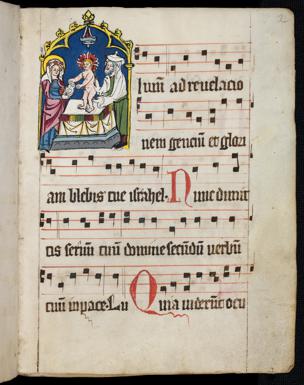 lum ad revelacio
nem genciū et glori
am plebis tue israhel. Nunc dimit
tis servum tuū domine secūdū verbū
tuū in pace. Lu Quia viderūt ocu